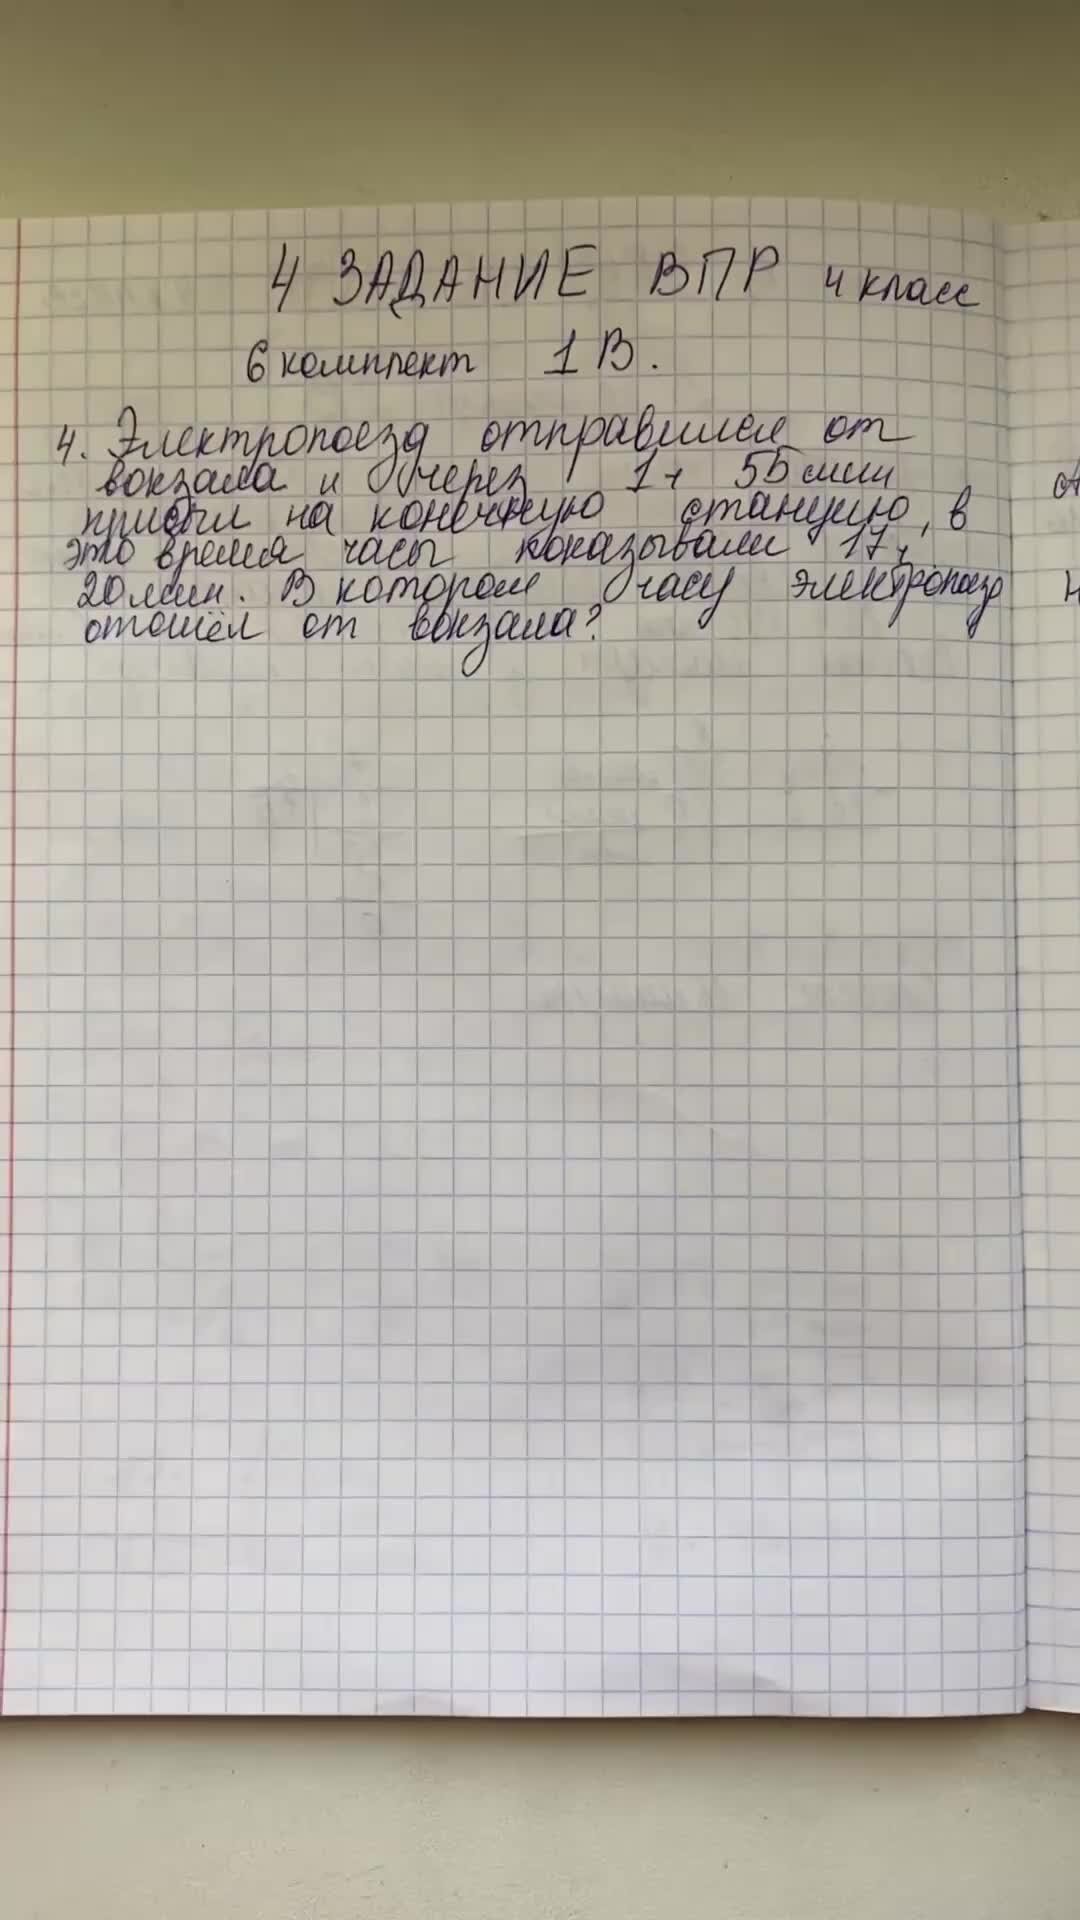 4 ЗАДАНИЕ ВПР 4 класс
6 комплект 1 В.
4. Электропоезд отправился от
вокзала и через 1ч 55 мин
прибыл на конечную станцию, в
это время часы показывали 17ч
20 мин. В котором часу электропоезд
отошёл от вокзала?